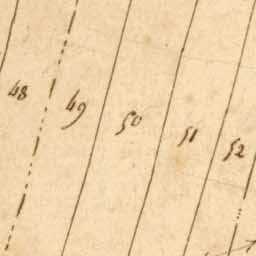 48 49 50 51 52